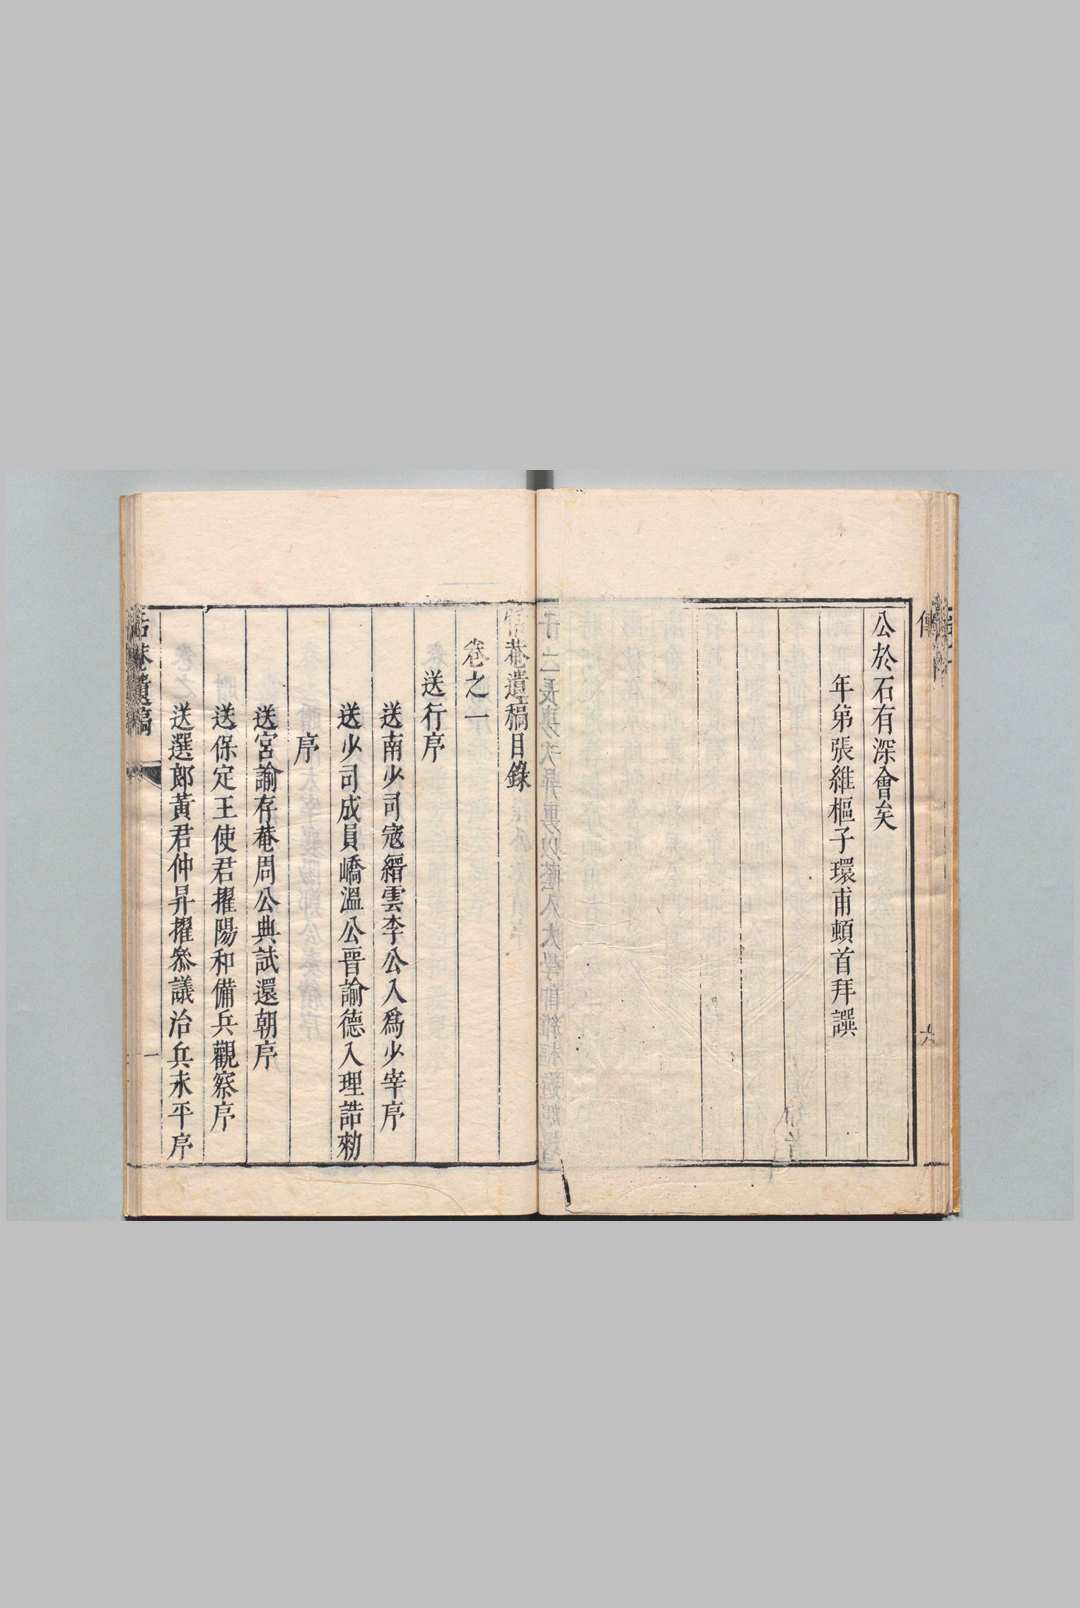 公於石有深會矣
年弟張維樞子環甫頓首拜譔
六
菴遺稿目錄
卷之一
送行序
送南少司寇縉雲李公入爲少宰序
送少司成員嶠溫公晉諭德入理誥勑
序
送宮諭存菴周公典試還朝序
送保定王使君擢陽和備兵觀察序
送選郎黃君仲昇擢叅議治兵永平序
菴遺稿
一